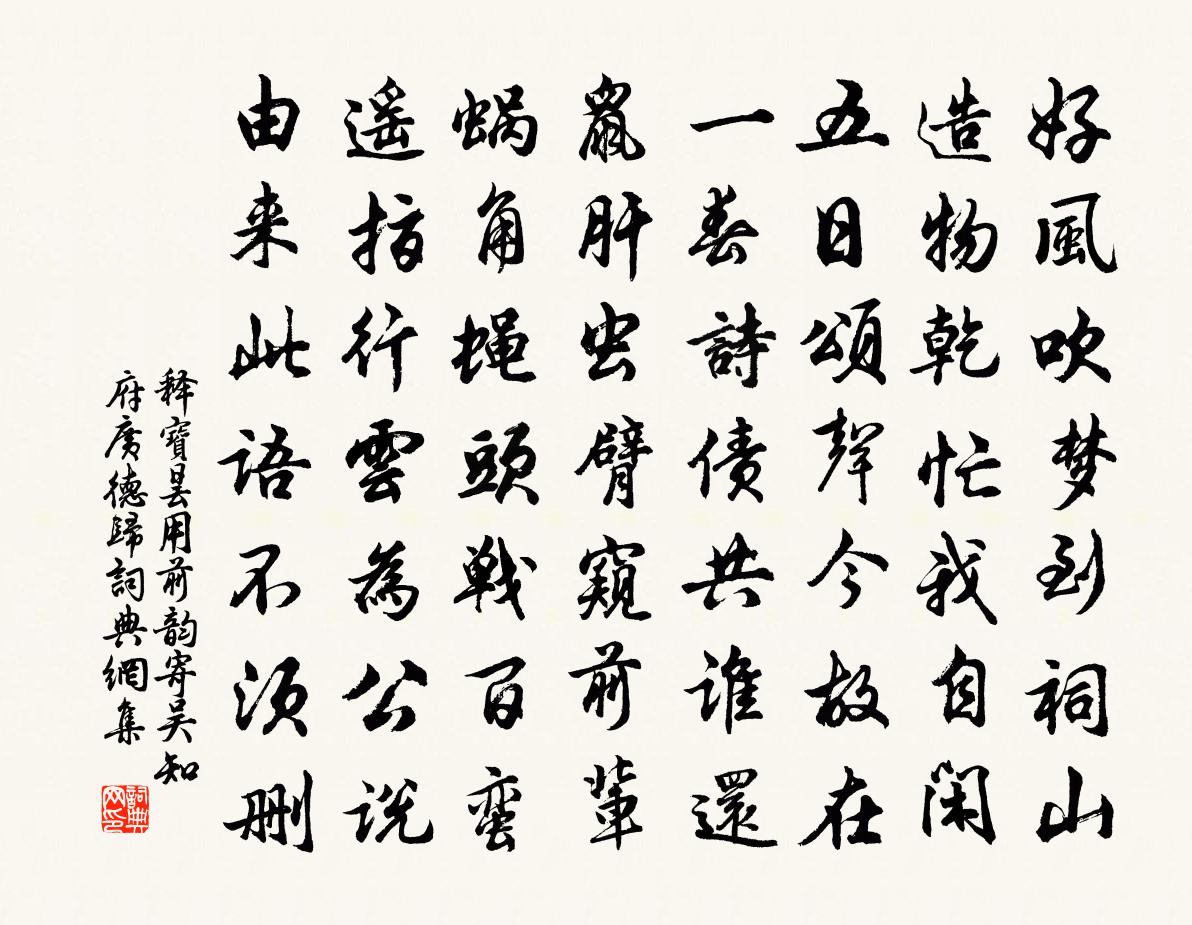 好風吹梦到祠山
造物乾忙我自闲
五日頌聲今故在
一春詩债共誰還
鼠肝虫臂窺前輩
蜗角蝇頭戦百蛮
遥指行雲為公说
由来此语不须删
释寶昙用前韵寄吴知
府廣德歸詞典網集
詞典
网印